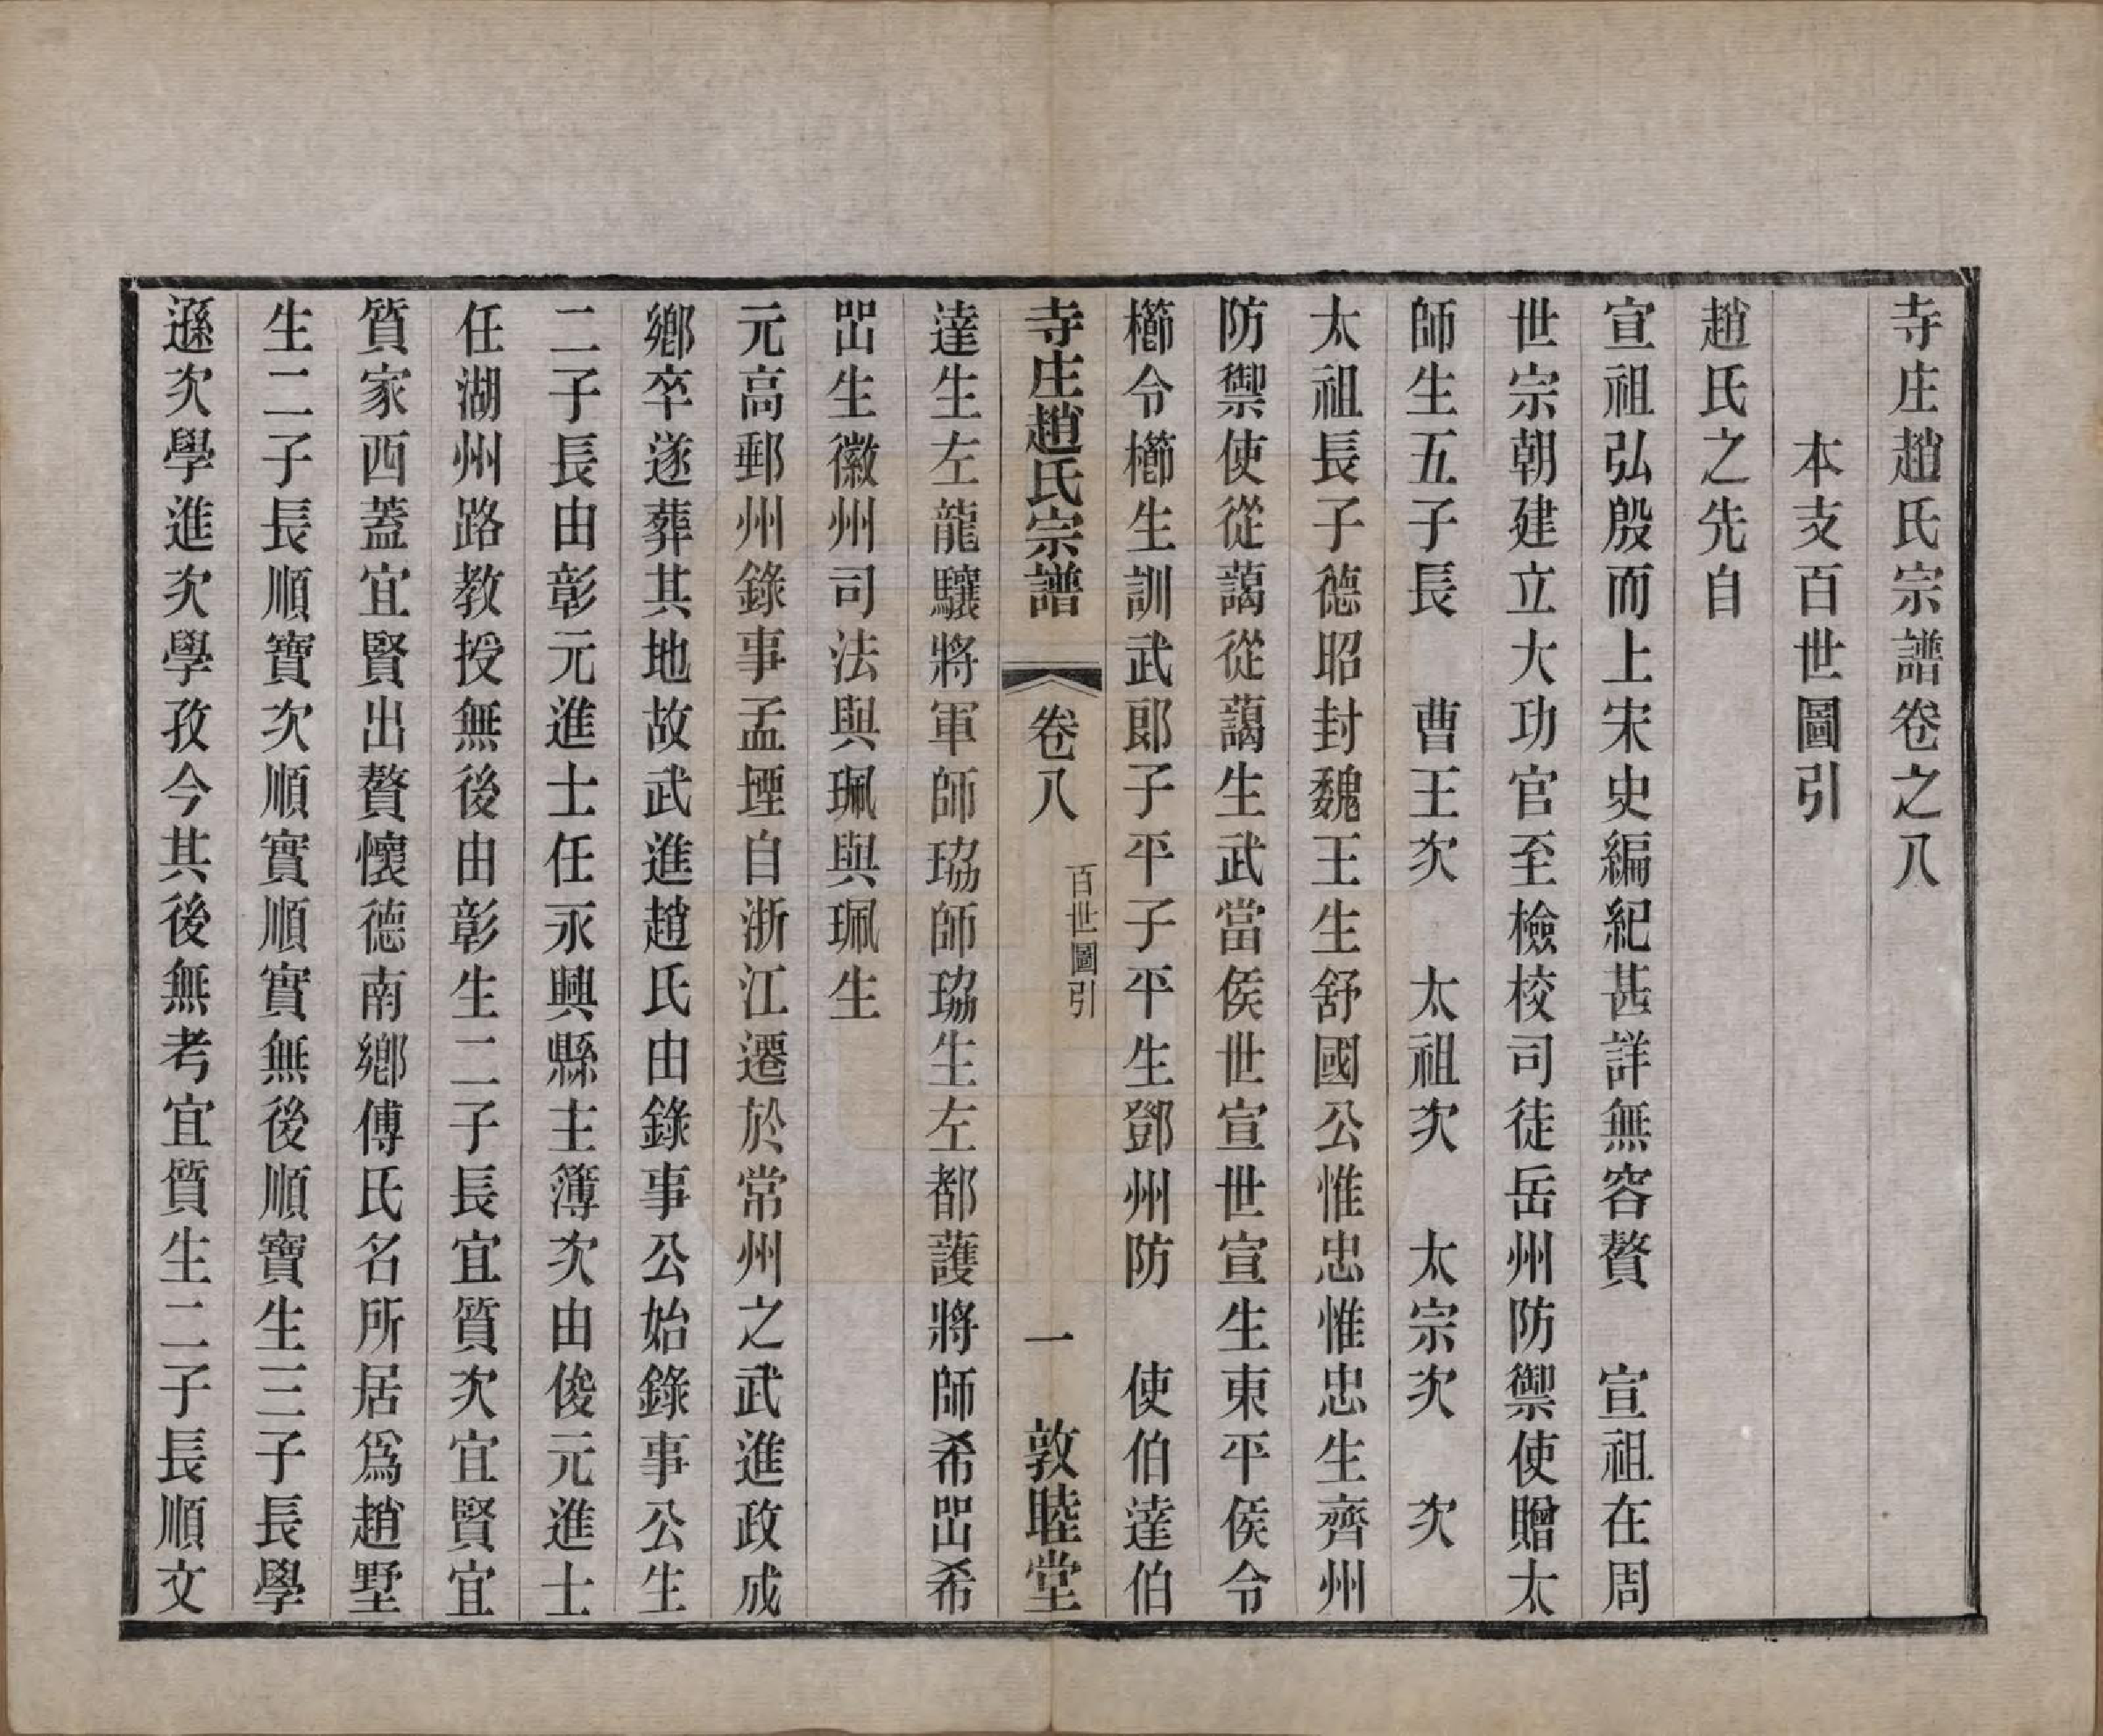 寺庄趙氏宗譜卷之八
本支百世圖引
趙氏之先自
宣祖弘殷而上宋史編紀甚詳無容贅　宣祖在周
世宗朝建立大功官至檢校司徒岳州防禦使贈太
師生五子長　曹王次　太祖次　太宗次　次
太祖長子德昭封魏王生舒國公惟忠惟忠生齊州
防禦使從藹從藹生武當侯世宣世宣生東平侯令
櫛令櫛生訓武郎子平子平生鄧州防　使伯達伯
寺庄趙氏宗譜
卷八
百世圖引
一
敦睦堂
達生左龍驤將軍師珕師珕生左都護將師希㽞希
㽞生徽州司法與珮與珮生
元高郵州錄事孟堙自浙江遷於常州之武進政成
鄉卒遂葬其地故武進趙氏由錄事公始錄事公生
二子長由彰元進士任永興縣主簿次由俊元進士
任湖州路教授無後由彰生二子長宜質次宜賢宜
質家西蓋宜賢出贅懷德南鄉傅氏名所居爲趙墅
生二子長順寶次順實順實無後順寶生三子長學
遜次學進次學孜今其後無考宜質生二子長順文